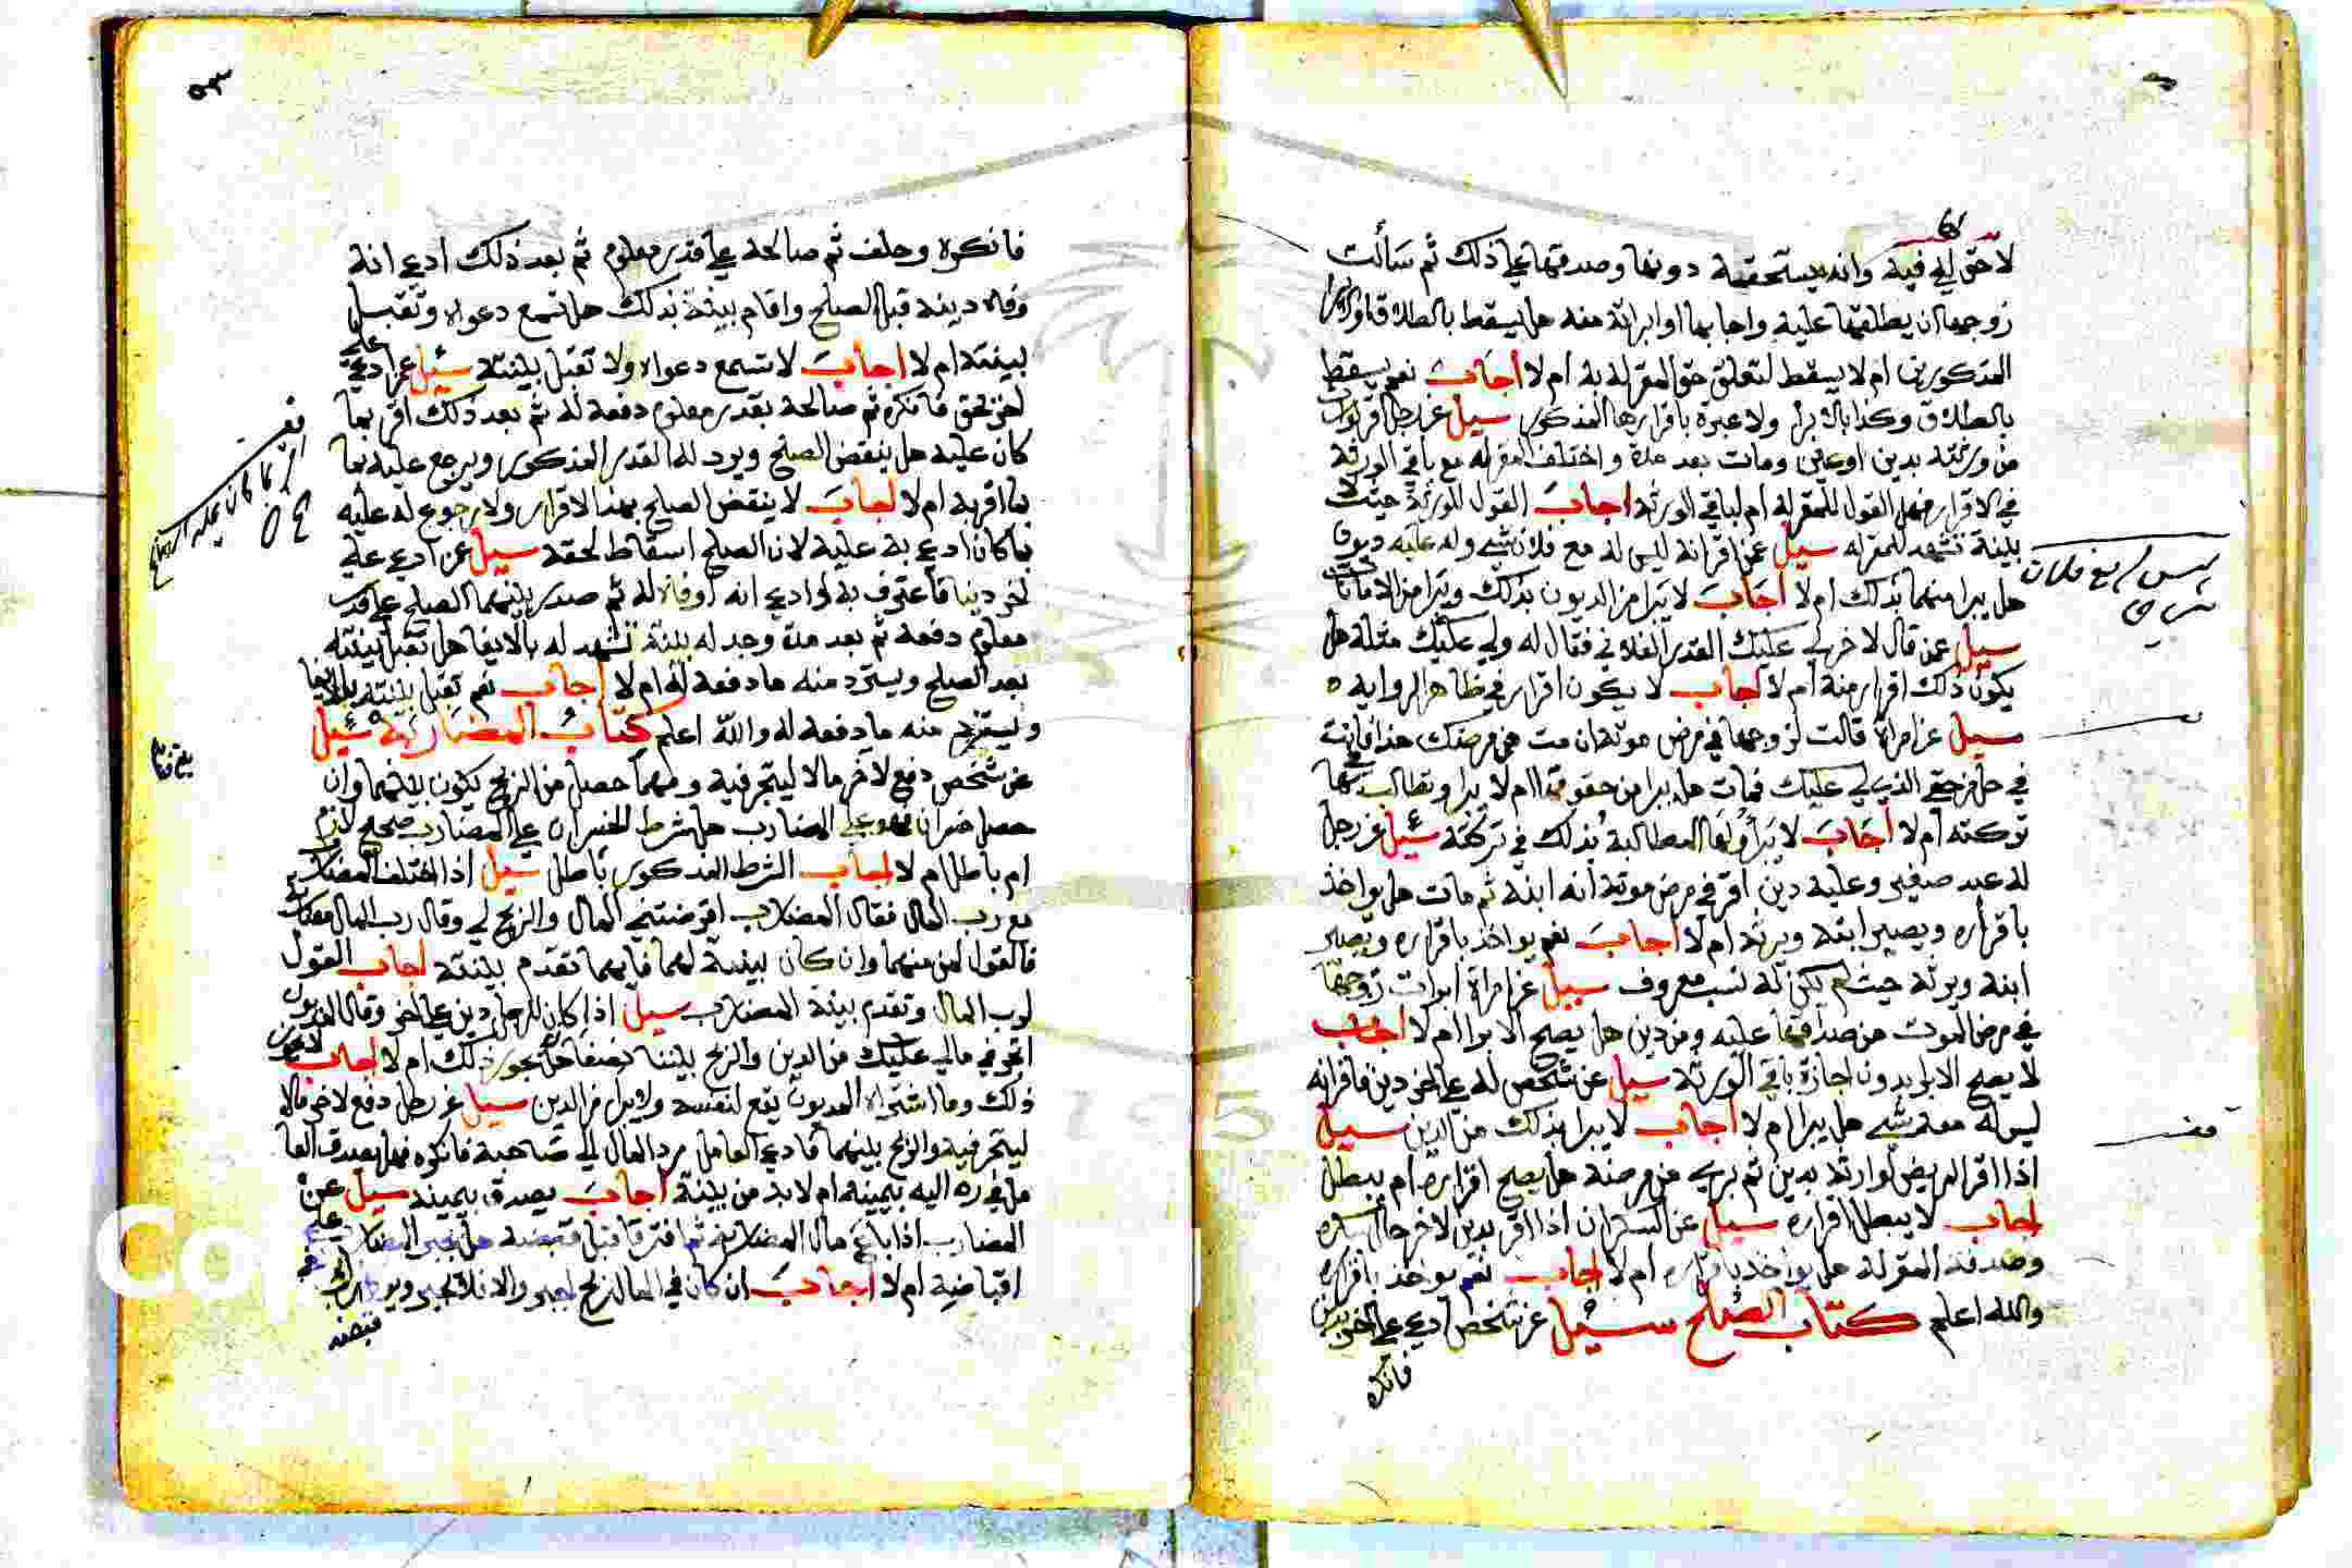 لا حق لي فيه وانه يستحقه دونها وصدقها على ذلك ثم سألت
زوجها ان يطلقها عليه واجابها او ابراته منه هل يسقط بالطلاق او الابرا
المذكورين ام لا يسقط لتعلق حق المقر له به ام لا اجاب نعم يسقط
بالطلاق وكذا بالابرا ولا عبرة باقرارها المذكور سيل عن رجل اقر لواحد
من ورثته بدين او عين ومات بعد مدة واختلف المقر له مع باقي الورثة
في الاقرار فهل القول للمقر له ام لباقي الورثة اجاب القول للورثة حيث لا
بينة تشهد للمقر له سيل عمن اقر انه ليس له مع فلان شي وله عليه ديون
هل يبرا منهما بذلك ام لا اجاب لا يبرا من الديون بذلك ويبرا من الامانات
سيل عمن قال لاخر لي عليك القدر الفلاني فقال له ولي عليك مثله هل
يكون ذلك اقرار منه ام لا اجاب لا يكون اقرار في ظاهر الرواية
سيل عن امراة قالت لزوجها في مرض موته ان مت من مرضك هذا فانت
في حل من حقي الذي لي عليك فمات هل يبرا من حقوقها ام لا يبرا وتطالب
تركته ام لا اجاب لا يبرأ ولها المطالبة بذلك في تركته سئيل عن رجل
له عبد صغير وعليه دين اقر في مرض موته انه ابنه ثم مات هل يواخذ
باقراره ويصير ابنه ويرثه ام لا اجاب نعم يواخذ باقراره ويصير
ابنه ويرثه حيث لم يكن له نسب معروف سيل عن امراة ابرات زوجها
في مرض الموت من صداقها عليه ومن دين هل يصح الابرا ام لا اجاب
لا يصح الابرا بدون اجازة باقي الورثة سيل عن شخص له على اخر دين فاقر انه
ليس له معه شي هل يبرا ام لا اجاب لا يبرا بذلك من الدين سيل
اذا اقر المريض لوارثه بدين ثم بري من مرضه هل يصح اقراره ام يبطل
اجاب لا يبطل اقراره سيل عن السكران اذا اقر بدين لاخر حال سكره
وصدقه المقر له هل يواخذ باقراره ام لا اجاب نعم يواخذ باقراره
والله اعلم كتاب الصلح سئيل عن شخص ادعى على اخر بدين
فانكره
٥٣
فانكره وحلف ثم صالحه على قدر معلوم ثم بعد ذلك ادعى انه
وفاه دينه قبل الصلح واقام بينة بذلك هل تسمع دعواه وتقبل
بينته ام لا اجاب لا تسمع دعواه ولا تقبل بينته سئيل عمن ادعى على
اخر بحق فانكره ثم صالحه بقدر معلوم دفعه له ثم بعد ذلك اقر بما
كان عليه هل ينقض الصلح ويرد له القدر المذكور ويرجع عليه بما
بما اقر به ام لا اجاب لا ينقض الصلح بهذا الاقرار ولا رجوع له عليه
بما كان ادعى به عليه لان الصلح اسقاط لحقه سيل عمن ادعى على
اخر دينا فاعترف به او ادعى انه اوفاه له ثم صدر بينهما الصلح على قدر
معلوم دفعه ثم بعد مدة وجد له بينة تشهد له بالايفا هل تقبل بينته
بعد الصلح ويسترد منه ما دفعه له ام لا اجاب نعم تقبل بينته بالايفا
ويسترد منه ما دفعه له والله اعلم كتاب المضاربة سئيل
عن شخص دفع لاخر مالا ليتجر فيه ومهما حصل من الربح يكون بينهما وان
حصل خسران فهو على المضارب هل شرط الخسران على المضارب صحيح لازم
ام باطل ام لا اجاب الشرط المذكور باطل سيل اذا اختلف المضارب
مع رب المال فقال المضارب اقرضتني المال والربح لي وقال رب المال مضاربة
فالقول لمن منهما وان كان بينة لهما فايهما تقدم بينته اجاب القول
لرب المال وتقدم بينة المضارب سيل اذا كان للرجل دين على اخر وقال للمديون
اتجر في مالي عليك من الدين والربح بيننا نصفا هل يجوز ذلك ام لا اجاب لا يجوز
ذلك وما اشتراه المديون يقع لنفسه ولا يبرا من الدين سيل عن رجل دفع لاخر مالا
ليتجر فيه والربح بينهما فادعى العامل رد المال الى صاحبه فانكره فهل يصدق العا
مل في رده اليه بيمينه ام لا بد من بينة اجاب يصدق بيمينه سيل عن
المضارب اذا باع مال المضاربة ثم افترقا قبل قبضه هل يجبر المضارب على
اقباضه ام لا اجاب ان كان في المال ربح اجبر والا فلا يجبر
قبضه